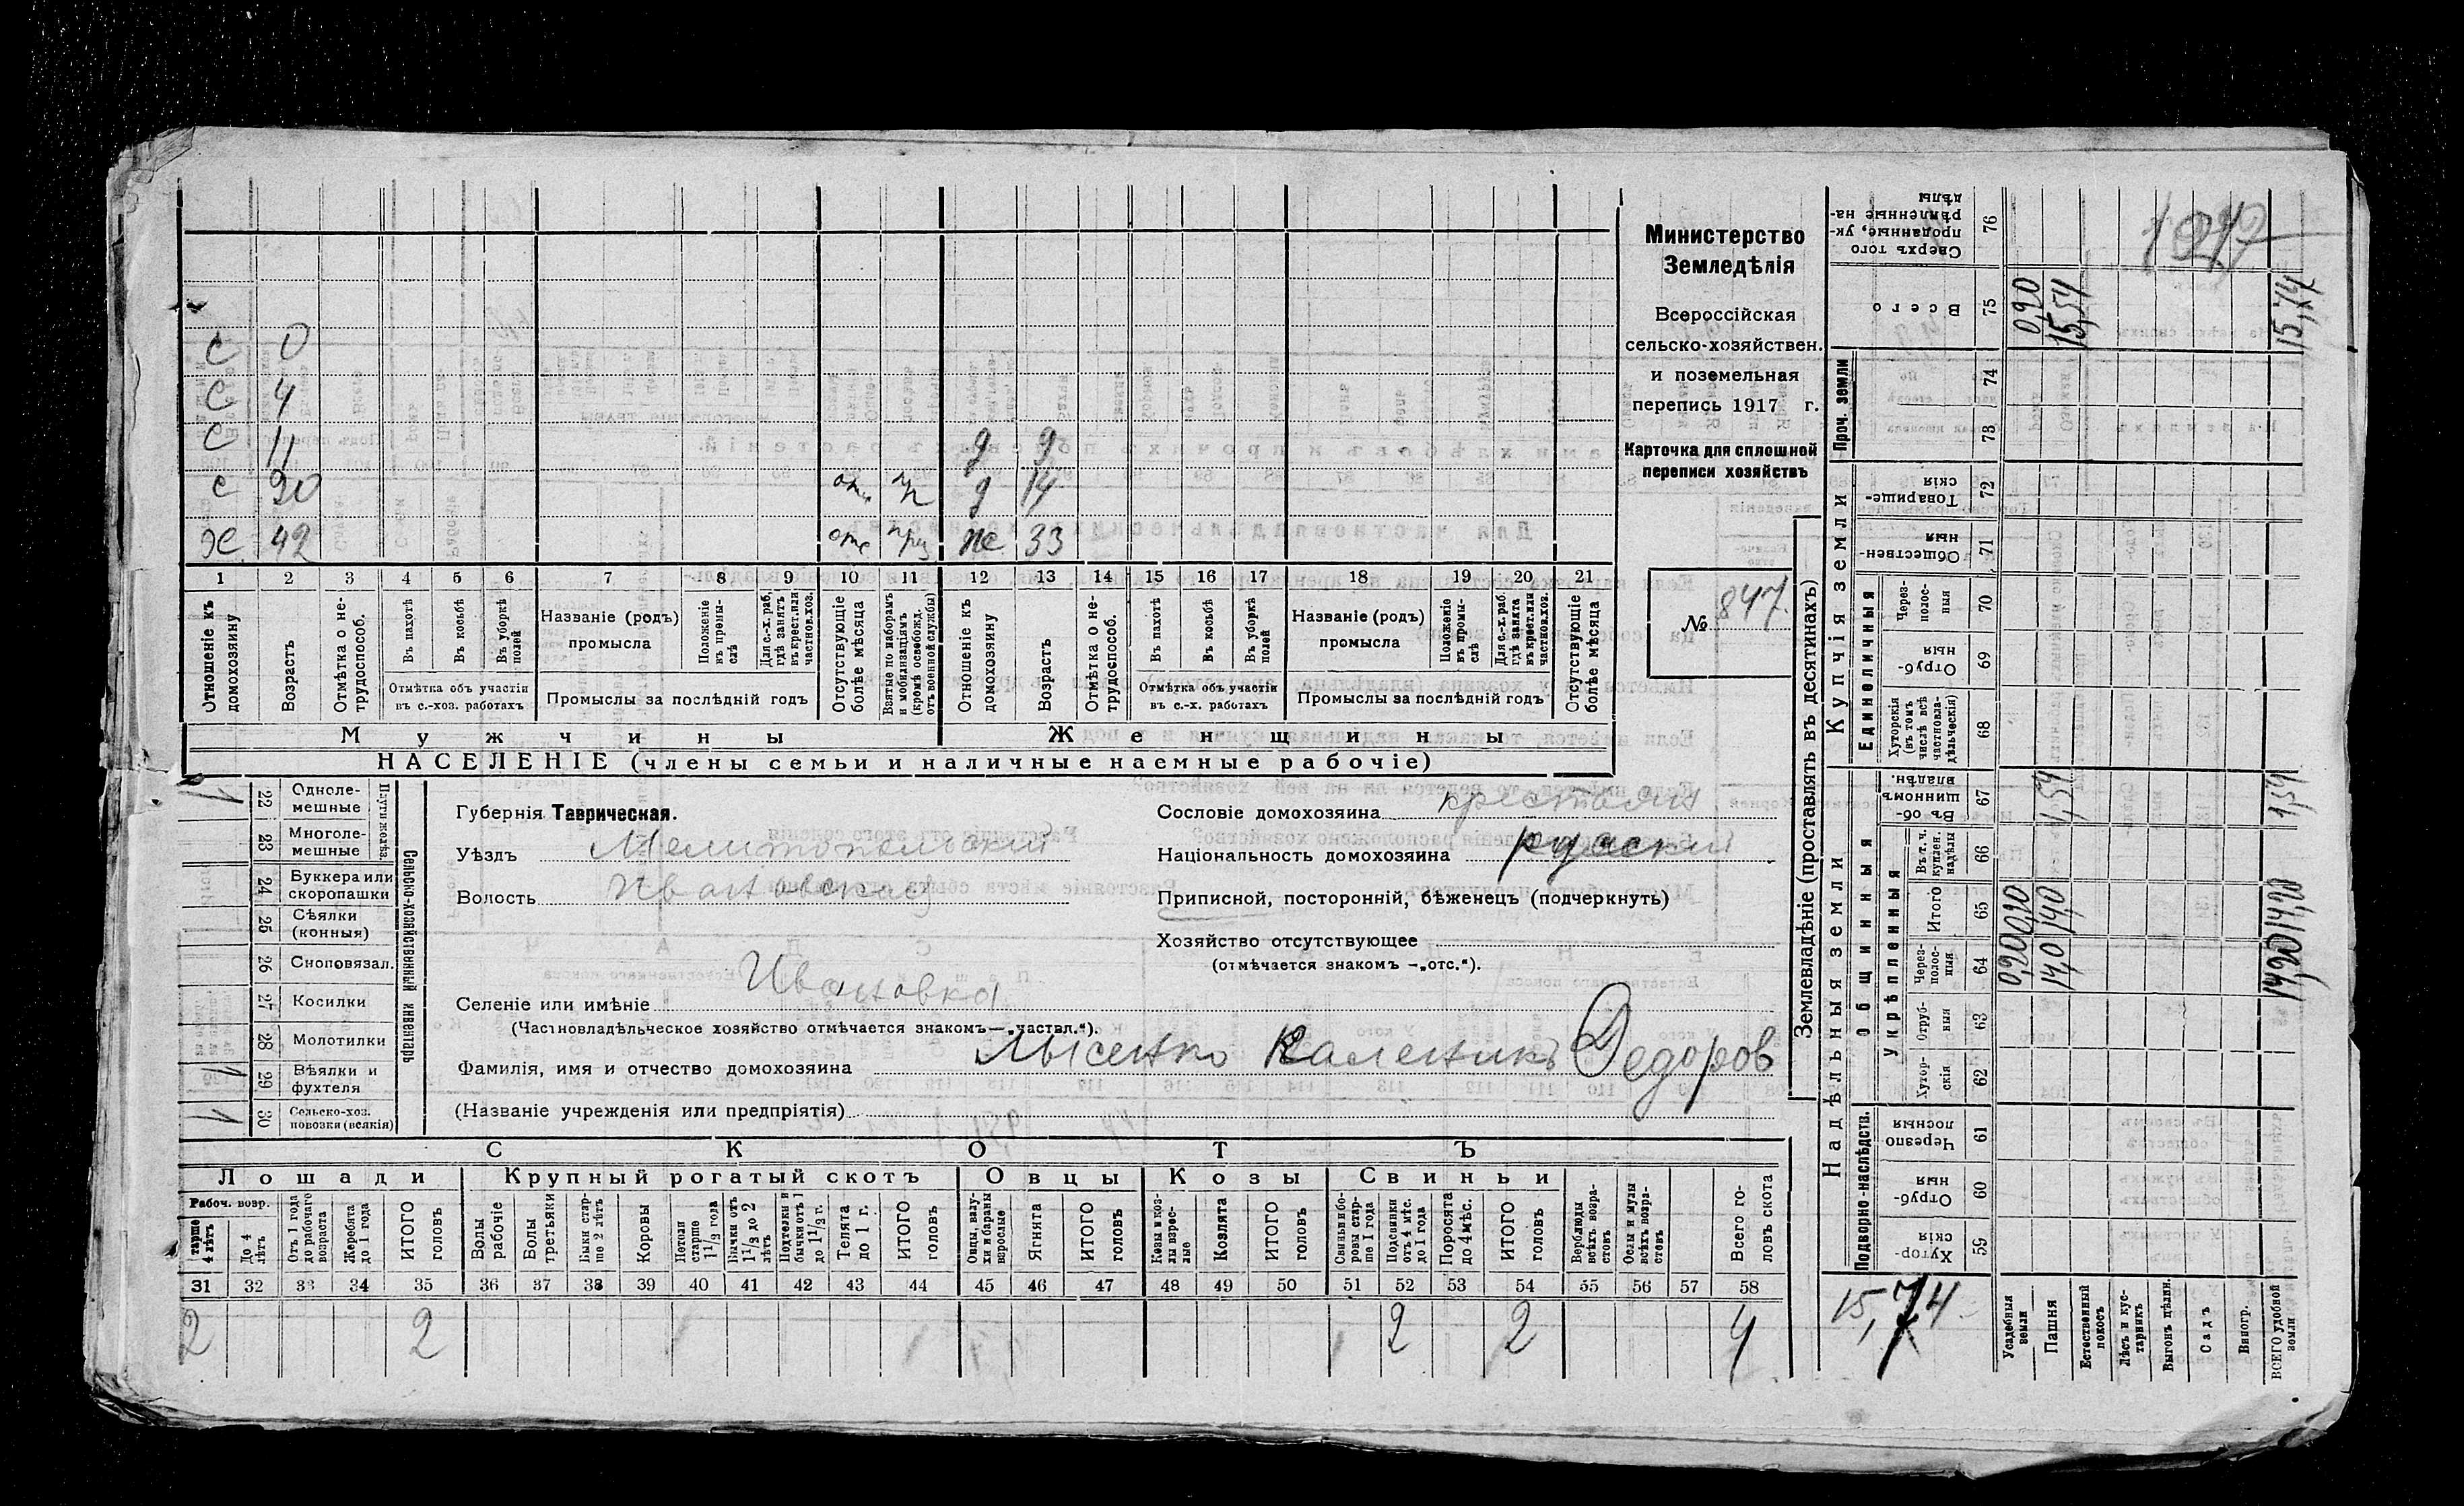 Министерство
Земледѣлія
Всероссійская
сельско-хозяйствен.
и поземельная
перепись 1917 г.
Карточка для сплошной
переписи хозяйствъ
№ 847.
с 0
с 4
с 11
д 9
с 20 отс пр д 14
х. 42 отс приз же 33
1 2 3 4 5 6 7 8 9 10 11 12 13 14 15 16 17 18 19 20 21
Отношеніе къ домохозяину
Возрастъ
Отмѣтка о нетрудоспособ.
Въ пахотѣ
Въ косьбѣ
Въ уборкѣ полей
Отмѣтка объ участіи
въ с.-хоз. работахъ
Названіе (родъ)
промысла
Положеніе въ промыслѣ
Для с.-х. раб. гдѣ занятъ въ крест. или частнов. хоз.
Промыслы за послѣдній годъ
Отсутствующіе болѣе мѣсяца
Взятые по наборамъ и мобилизаціямъ (кромѣ освобожд. отъ военной службы)
Отношеніе къ домохозяину
Возрастъ
Отмѣтка о нетрудоспособ.
Въ пахотѣ
Въ косьбѣ
Въ уборкѣ полей
Отмѣтка объ участіи
въ с.-х. работахъ
Названіе (родъ)
промысла
Положеніе въ промыслѣ
Для с.-х. раб. гдѣ занята въ крест. или частнов. хоз.
Промыслы за послѣдній годъ
Отсутствующіе болѣе мѣсяца
Мужчины Женщины
НАСЕЛЕНІЕ (члены семьи и наличные наемные рабочіе)
Губернія Таврическая.
Уѣздъ Мелитопольский
Волость Ивановская
Селеніе или имѣніе Ивановка
(Частновладѣльческое хозяйство отмѣчается знакомъ—„частвл.“).
Фамилія, имя и отчество домохозяина Лысенко Каленикъ Федоров
(Названіе учрежденія или предпріятія)
Сословіе домохозяина крестьянин
Національность домохозяина руский
Приписной, посторонній, бѣженецъ (подчеркнуть)
Хозяйство отсутствующее
(отмѣчается знакомъ —„отс.“).
Сельско-хозяйственный инвентарь
Плуги желѣз.
22 Однолемешные 1
23 Многолемешные
24 Буккера или скоропашки
25 Сѣялки (конныя)
26 Сноповязал.
27 Косилки
28 Молотилки
29 Вѣялки и фухтеля 1
30 Сельско-хоз. повозки (всякія) 1
СКОТЪ
Лошади Крупный рогатый скотъ Овцы Козы Свиньи
Рабоч. возр.
тарше 4 лѣтъ
До 4 лѣтъ
Отъ 1 года до рабочаго возраста
Жеребята до 1 года
ИТОГО головъ
Волы рабочіе
Волы третьяки
Быки старше 2 лѣтъ
Коровы
Нетели старше 1½ года
Бычки отъ 1½ до 2 лѣтъ
Подтелки и бычки отъ 1 до 1½ г.
Телята до 1 г.
ИТОГО головъ
Овцы, валухи и бараны взрослые
Ягнята
ИТОГО головъ
Козы и козлы взрослые
Козлята
ИТОГО головъ
Свиньи и боровы старше 1 года
Подсвинки отъ 4 мѣс. до 1 года
Поросята до 4 мѣс.
ИТОГО головъ
Верблюды всѣхъ возрастовъ
Ослы и мулы всѣхъ возрастовъ
Всего головъ скота
31 32 33 34 35 36 37 38 39 40 41 42 43 44 45 46 47 48 49 50 51 52 53 54 55 56 57 58
2 2 2 2 4
Землевладѣніе (проставлять въ десятинахъ)
Надѣльныя земли Купчія земли Проч. земли
Подворно-наслѣдств.
общинныя
Укрѣпленныя
Единоличныя
Хуторскія 59
Отрубныя 60
Черезполосныя 61
Хуторскія 62
Отрубныя 63
Черезполосныя 64
Итого 65
Въ т. ч. куплен. надѣлы 66
Въ общинномъ владѣн. 67
Хуторскія (въ томъ числѣ всѣ частновладѣльческія) 68
Отрубныя 69
Черезполосныя 70
Общественныя 71
Товарищескія 72
73
74
Всего 75
Сверхъ того проданные, укрѣпленные надѣлы 76
Усадебныя земли 0,20 0,20 0,20
Пашня 14,0 14,0 1,54 15,54
Естественный покосъ
Лѣсъ и кустарникъ
Выгонъ цѣлин.
Садъ
Виногр.
ВСЕГО удобной земли 14,20 14,20 1,54 15,74
15,74